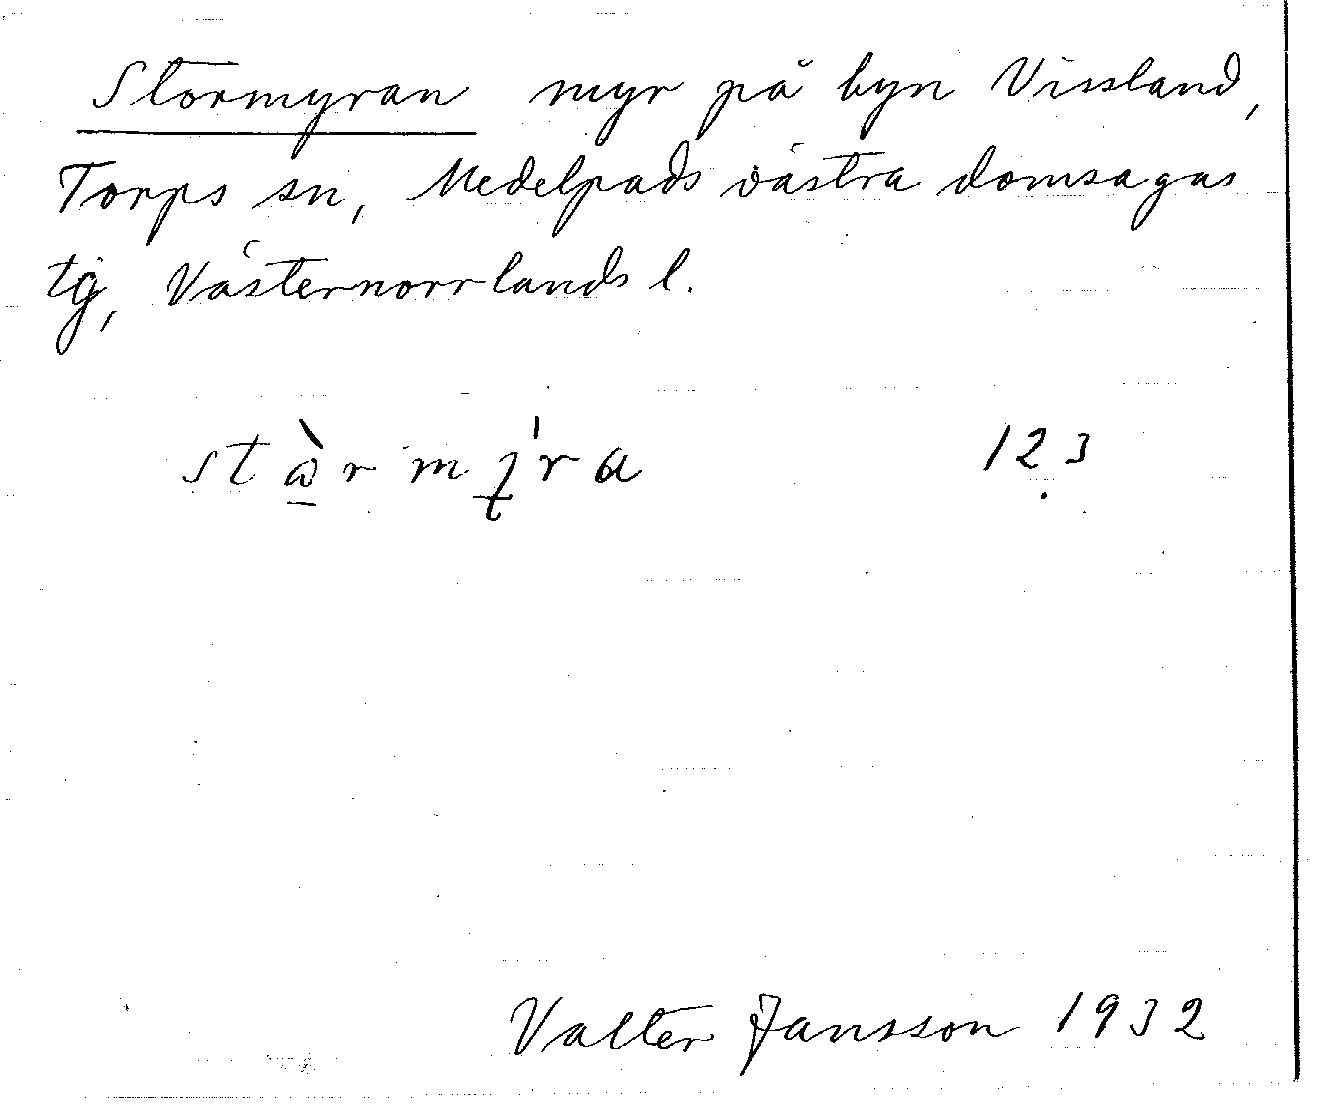 Stormyran myr på byn Vissland,
Torps sn, Medelpads västra domsagas
tg, Västernorrlands l.
123
Valter Jansson 1932